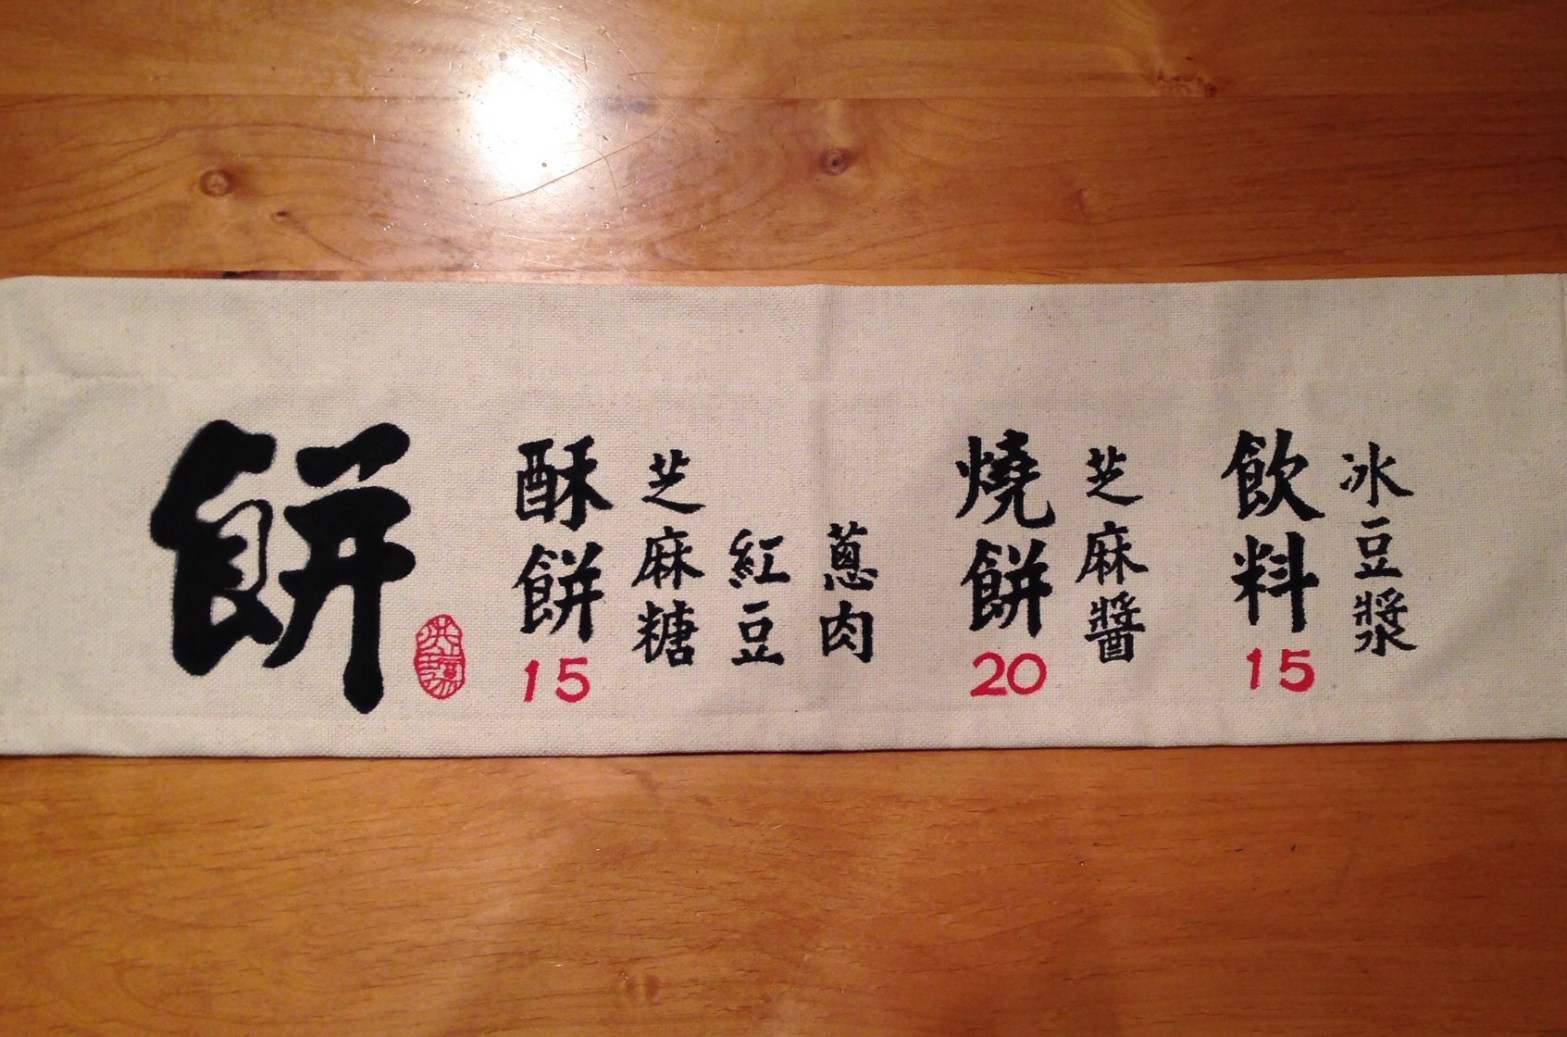 餅
酥餅
15
芝麻糖
紅豆
蔥肉
燒餅
20
芝麻醬
飲料
15
冰豆漿